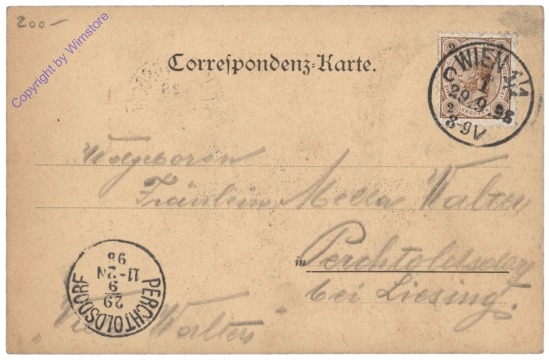 200-
Copyright by Wimstore
Correspondenz-Karte.
WIEN 1/1
C 1
29/9.98
8-9V
2
Wolgeboren
Fräulein Mella Walter
in Perchtoldsdorf
bei Liesing.
PERCHTOLDSDORF
29
9
11-2N
98
"Walter"